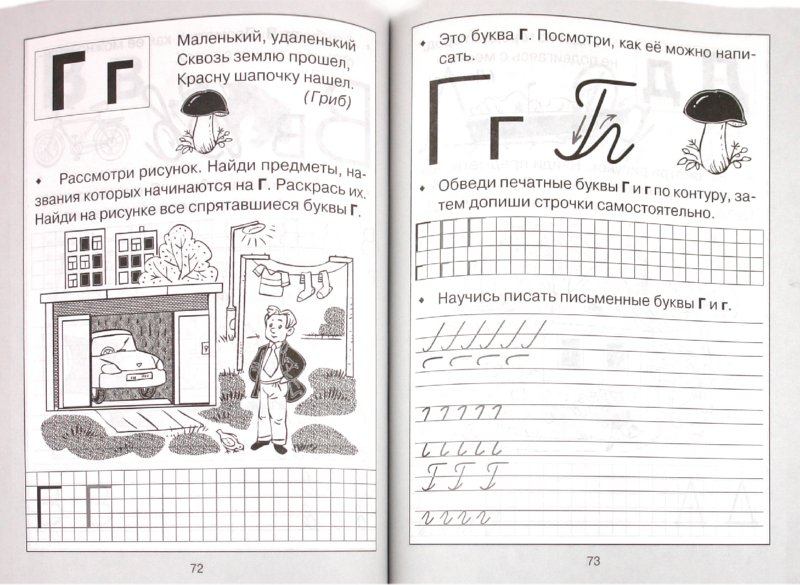 Г г
Маленький, удаленький
Сквозь землю прошел,
Красну шапочку нашел.
(Гриб)
♦ Рассмотри рисунок. Найди предметы, на-
звания которых начинаются на Г. Раскрась их.
Найди на рисунке все спрятавшиеся буквы Г.
Г Г
72
♦ Это буква Г. Посмотри, как её можно напи-
сать.
Г г Г г
♦ Обведи печатные буквы Г и г по контуру, за-
тем допиши строчки самостоятельно.
♦ Научись писать письменные буквы Г и г.
Г Г Г
г г г г
73